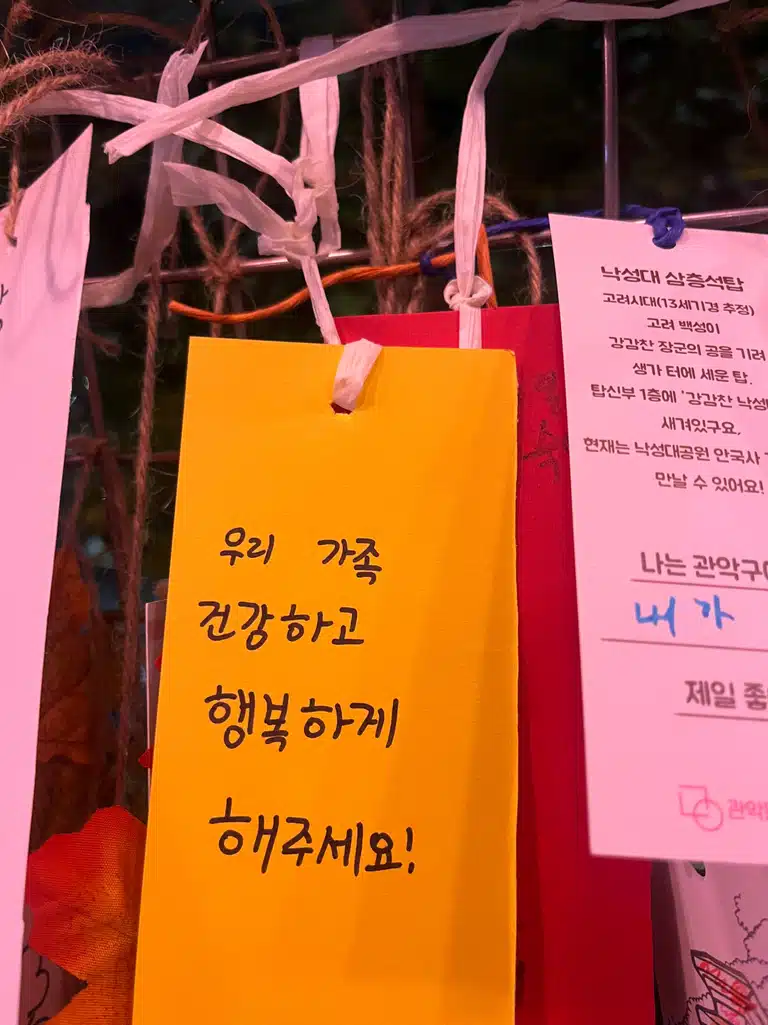 우리 가족
건강하고
행복하게
해주세요!
낙성대 삼층석탑
고려시대(13세기경 추정)
고려 백성이
강감찬 장군의 공을 기려
생가 터에 세운 탑.
탑신부 1층에 '강감찬 낙성
새겨있구요,
현재는 낙성대공원 안국사
만날 수 있어요!
나는 관악구
내가
제일 좋
관악